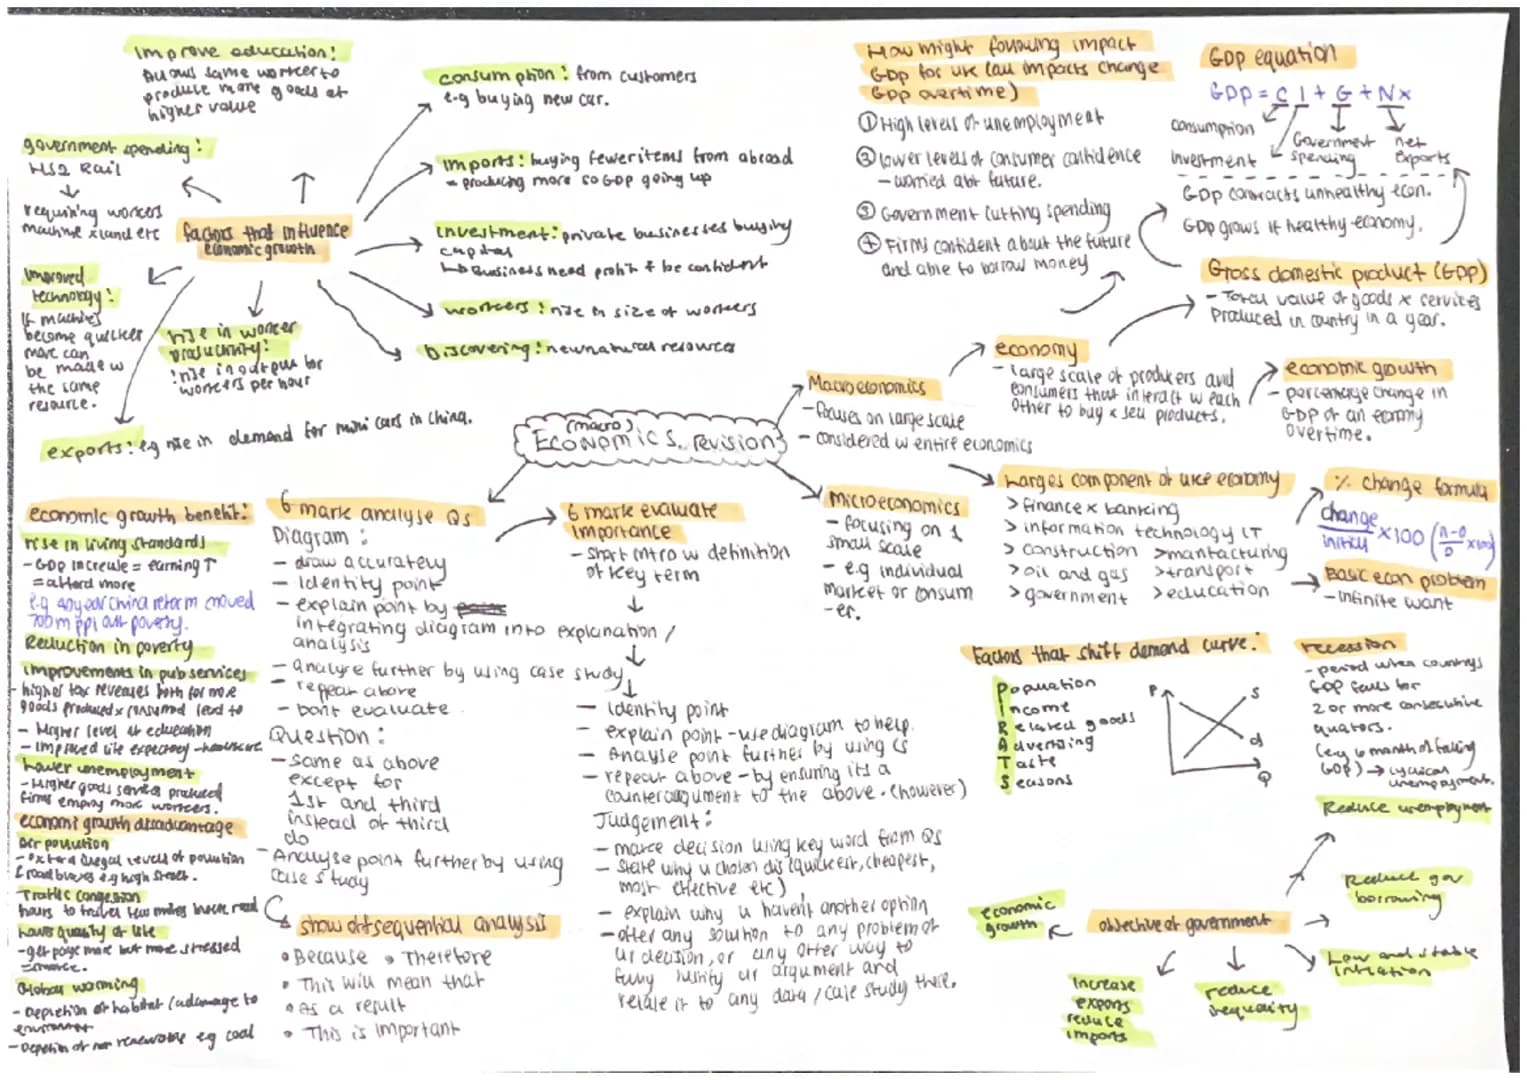 Improve education:
Allows same worker to
produce more goods at
higher value
government spending:
HS2 Rail
requiring workers
machine x land etc
factors that influence
economic growth
Improved
technology:
If machines
become quicker
more can
be made w
the same
resource.
rise in worker
productivity:
rise in output for
workers per hour
exports: e.g rise in demand for mini cars in china.
consumption: from customers
e.g buying new car.
imports: buying fewer items from abroad
= producing more so GDP going up
investment: private businesses buying
capital
↳ Business need profit & be confident
workers: rise in size of workers
Discovering: new natural resources
How might following impact
GDP for UK (all impacts change
GDP overtime)
① High levels of unemployment
② lower levels of consumer confidence
- worried abt future.
③ Government cutting spending
④ Firms confident about the future
and able to borrow money
GDP equation
GDP = C I + G + Nx
consumption
investment
Government
spending
net
exports
GDP contracts unhealthy econ.
GDP grows if healthy economy.
Gross domestic product (GDP)
- Total value of goods x services
Produced in country in a year.
economy
- large scale of producers and
consumers that interact w each
other to buy x sell products.
economic growth
- percentage change in
GDP of an economy
overtime.
Macroeconomics
- focuses on large scale
- considered w entire economics
(macro)
Economics revision
economic growth benefit:
rise in living standards
- GDP increase = earning ↑
= afford more
700m ppl out poverty.
Reduction in poverty
improvements in pub services
- higher tax revenues both for more
goods produced x consumed lead to
- Higher level of education
- Improved life expectancy - healthcare
Lower unemployment
- Higher goods services produced
firms employ more workers.
economic growth disadvantage
Air pollution
e.g high street.
Traffic congestion
hours to travel few miles
lower quality of life
- get paid more but more stressed
Global warming
- Depletion of habitat
environment
- Depletion of non renewable e.g coal
6 mark analyse Qs
Diagram:
- draw accurately
- identify point
- explain point by
integrating diagram into explanation /
analysis
- analyse further by using case study
- repeat above
- Dont evaluate
Question:
- same as above
except for
1st and third
instead of third
do
- Analyse point further by using
case study
show off sequential analysis
• Because • Therefore
• This will mean that
• As a result
• This is important
6 mark evaluate
importance
- short intro w definition
of key term
- identify point
- explain point - use diagram to help.
- Analyse point further by using CS
- repeat above - by ensuring its a
counterargument to the above. (however)
Judgement:
- make decision using key word from Qs
- State why u chosen dis (quickest, cheapest,
most effective etc)
- explain why u havent another option
- offer any solution to any problem of
ur decision, or any other way to
fully justify ur argument and
relate it to any data / case study there.
Microeconomics
- focusing on 1
small scale
- e.g individual
market or consum
- er.
Larges component of uks economy
> finance x banking
> information technology IT
> construction > manfacturing
> oil and gas > transport
> government > education
% change formula
change
initial × 100 (n-o
o × 100)
Basic econ problem
- infinite want
Factors that shift demand curve:
Population
Income
Related goods
Advertising
Taste
Seasons
P
S
d
Q
recession
- period when countrys
GDP falls for
2 or more consecutive
quaters.
(e.g 6 month of falling
GDP) → cyclical
unemployment.
objective of government
Reduce unemployment
Reduce gov
borrowing
Low and stable
inflation
reduce
inequality
Increase
exports
reduce
imports
economic
growth